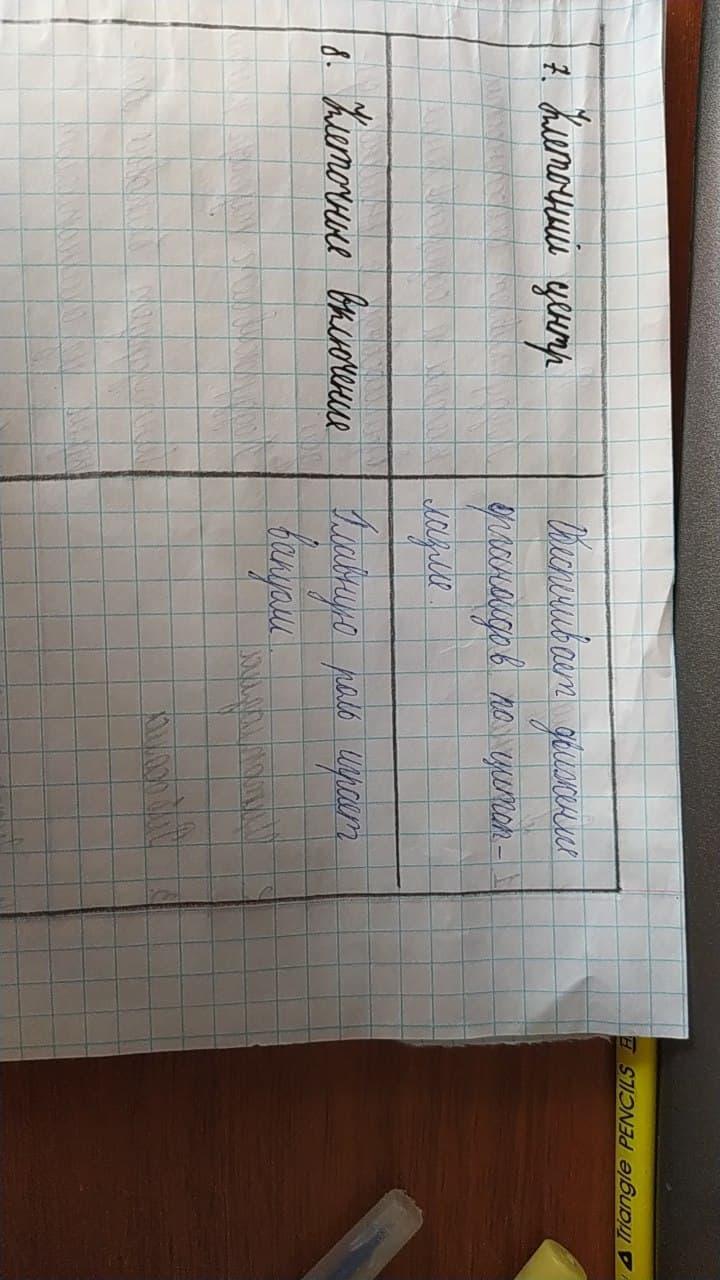 7. Клеточный центр
Обеспечивает движение
органоидов по цитоп-
лазме.
8. Клеточные включение
Главную роль играет
вакуоли.
Triangle PENCILS